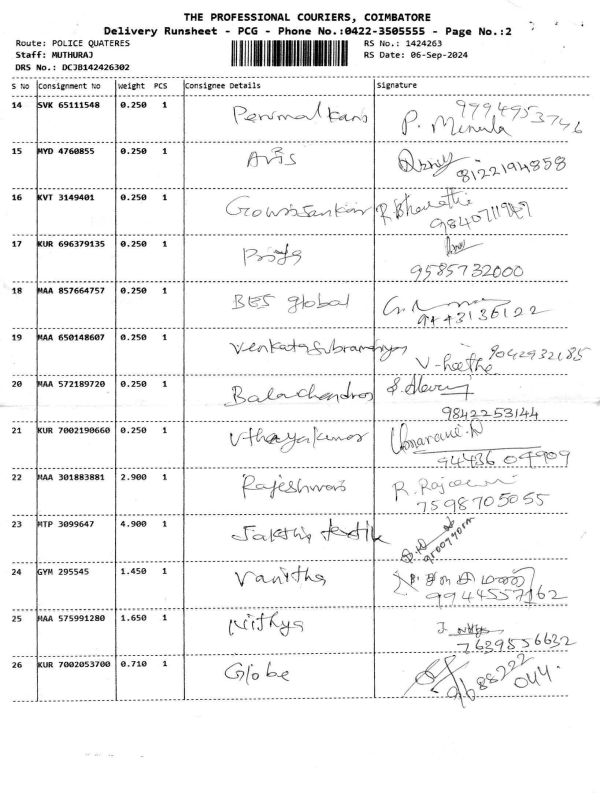 THE PROFESSIONAL COURIERS, COIMBATORE
Delivery Runsheet - PCG - Phone No.:0422-3505555 - Page No.:2
Route: POLICE QUATERES
RS No.: 1424263
Staff: MUTHURAJ
RS Date: 06-Sep-2024
DRS No.: DCJB142426302
S No Consignment No Weight PCS Consignee Details Signature
14 SVK 65111548 0.250 1 9994953746
P.
15 MYD 4760855 0.250 1
8122194858
16 KVT 3149401 0.250 1 Gowrisankar R. Bharathi
17 KUR 696379135 0.250 1 Priya
9585732000
18 MAA 857664757 0.250 1 BES global
9443136122
19 MAA 650148607 0.250 1 9042932185
20 MAA 572189720 0.250 1
9842253144
21 KUR 7002190660 0.250 1 Uthayakumar
94436 04909
22 MAA 301883881 2.900 1 Rajeshwari
7598705055
23 MTP 3099647 4.900 1 Sakthi
24 GYM 295545 1.450 1 Vanitha
9944557162
25 MAA 575991280 1.650 1 Nithya
7639556632
26 KUR 7002053700 0.710 1 Globe
9688222
044